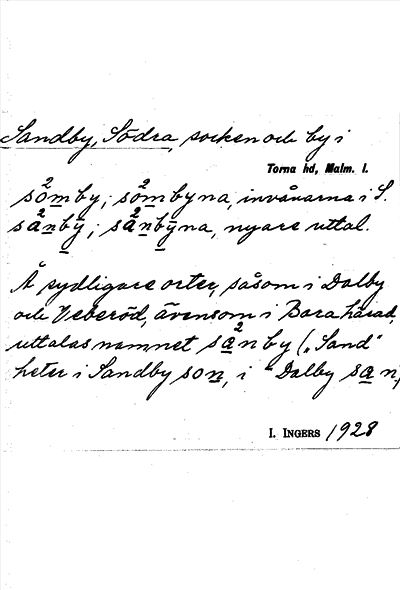 Sandby, Södra, socken och by i
Torna hd, Malm. l.
sòmby; sòmbyna, invånarna i S.
sànby; sànbyna, nyare uttal.
Å sydligare orter, såsom i Dalby
och Veberöd, ävensom i Bara härad,
uttalas namnet sànby („Sand"
heter i Sandby son, i "Dalby san)
I. INGERS 1928